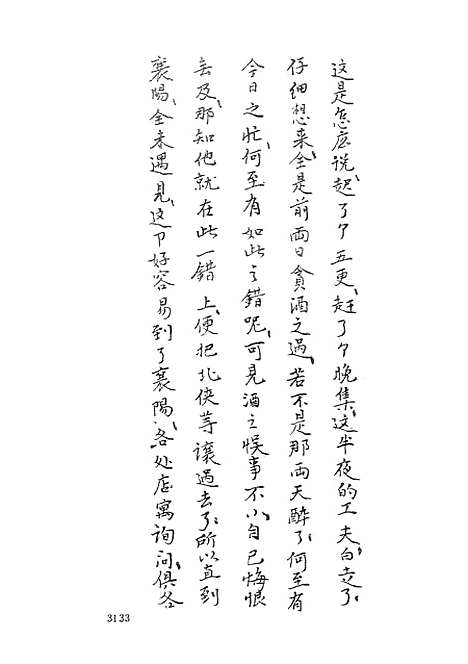 这是怎庅说、起了个五更、赶了个晚集、这半夜的工夫白走了、
仔细想来、全是前两日貪酒之过、若不是那两天醉了、何至有
今日之忙、何至有如此之错呢、可見酒之悮事不小、自己悔恨
无及、那知他就在此一错上、便把北侠䓁讓过去了、所以直到
襄陽、全未遇見、这卩好容易到了襄陽、各处店寓詢问、俱各
3133